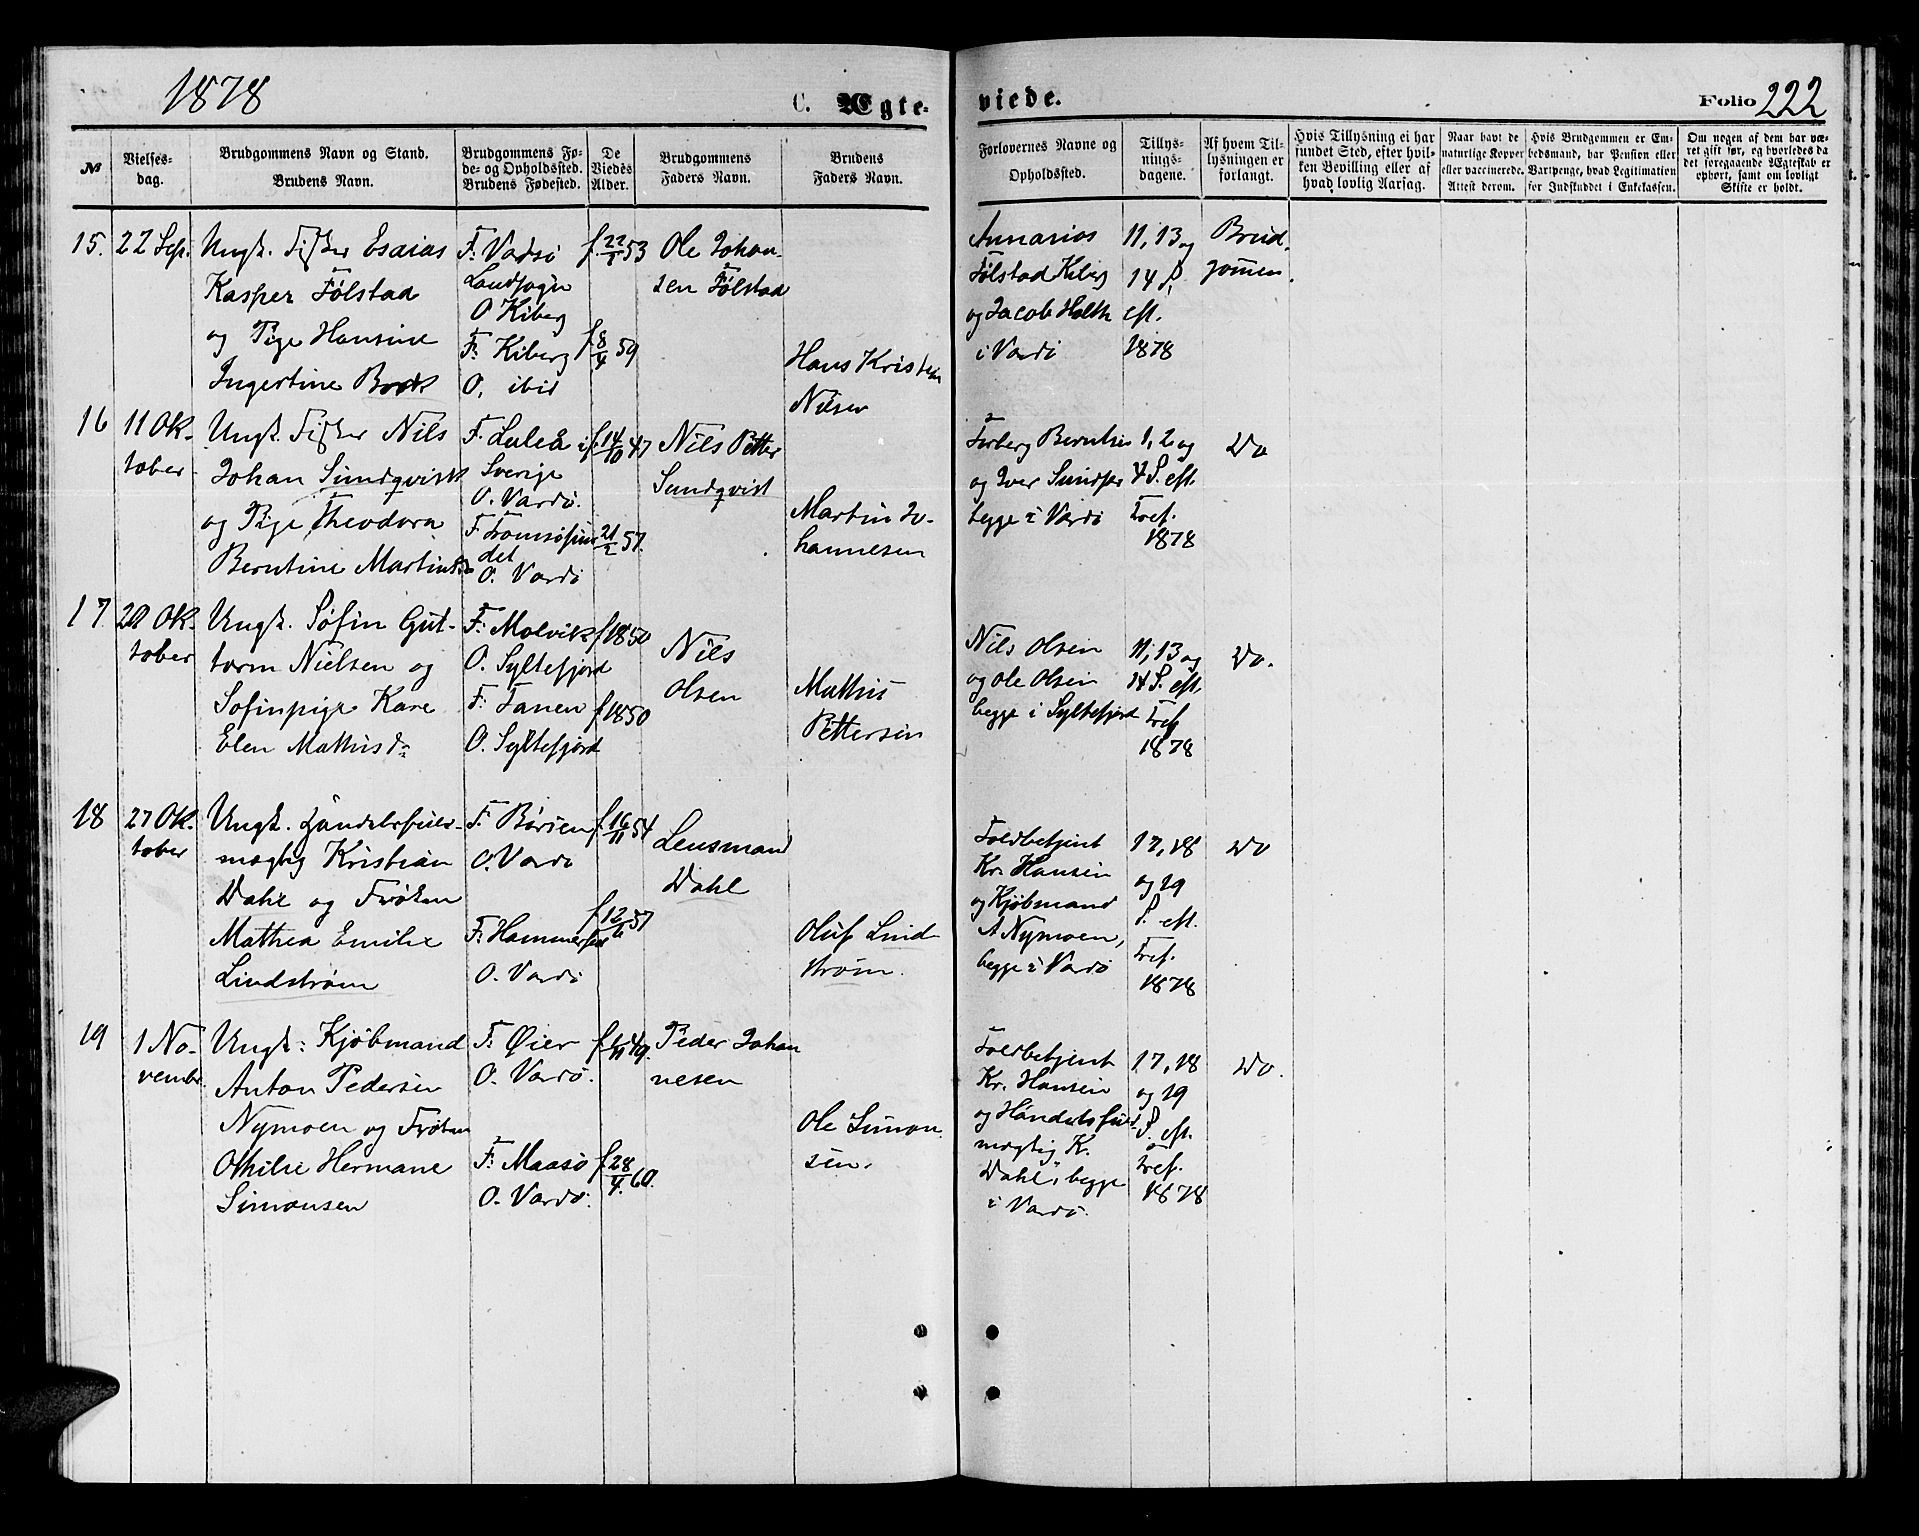 1878
C. Ægte-
viede.
Folio 222
№
Vielses-
dag.
Brudgommens Navn og Stand.
Brudens Navn.
Brudgommens Fø-
de- og Opholdssted.
Brudens Fødested.
De
Viedes
Alder.
Brudgommens
Faders Navn.
Brudens
Faders Navn.
Forlovernes Navne og
Opholdssted.
Tillys-
nings-
dagene.
Af hvem Til-
lysningen er
forlangt.
Hvis Tillysning ei har
fundet Sted, efter hvil-
ken Bevilling eller af
hvad lovlig Aarsag.
Naar havt de
naturlige Kopper
eller vaccinerede.
Attest derom.
Hvis Brudgommen er Em-
bedsmand, har Pension eller
Vartpenge, hvad Legitimation
for Indskuddet i Enkekassen.
Om nogen af dem har væ-
ret gift før, og hvorledes da
det foregaaende Ægteskab er
ophørt, samt om lovligt
Skifte er holdt.
15.
22 Sep.
Ungk. Fisker Esaias
Kasper Følstad
og Pige Hansine
Ingertine Brok
F. Vadsø
Landsogn
O Kiberg
F. Kiberg
O. ibid
f. 22/1 53
f. 8/4 59
Ole Johan-
sen Følstad
Hans Kristen
Nilsen
Annanias
Følstad Kiberg
og Jacob Holth
i Vardø
11, 13 og
14 S.
eft.
1878
Brud-
gommen.
16
11 Ok-
tober
Ungk. Fisker Nils
Johan Sundqvist
og Pige Theodora
Berntine Martinsd.
F. Luleå i
Sverige
O. Vardø.
F. Tromsøsun
det
O. Vardø
f. 14/10 47
21/2 57.
Nils Petter
Sundqvist
Martin Jo-
hannesen
og Iver
begge i Vardø
1, 2 og
4 S. eft.
Tref.
1878
Do
17.
20 Ok-
tober
Ungk. Søfin Gut-
torm Nielsen og
Søfinpige Kare
Elen Mathisd.
F. Molvik
O. Syltefjord
F. Tanen
O. Syltefjord
f 1850
f 1850
Nils
Olsen
Mathis
Pettersen
Nils Olsen
og Ole Olsen
begge i Syltefjord
11, 13 og
14 S. eft.
Tref
1878
Do.
18
27 Ok-
tober
Ungk. Handelsfuld-
mægtig Kristian
Dahl og Frøken
Mathea Emilie
Lindstrøm
F. Børsen
O. Vardø
F. Hammerfest
O. Vardø
f. 16/11 54
f. 12/6 57
Lensmand
Dahl
Oluf Lind-
strøm.
Toldbetjent
Kr. Hansen
og Kjøbmand
A Nymoen,
begge i Vardø
17, 18
og 19
S. eft.
Tref.
1878
Do
19
1 No-
vembr.
Ungk. Kjøbmand
Anton Pedersen
Nymoen og Frøken
Othilie Hermane
Simonsen
F. Øier
O. Vardø.
F. Maasø
O. Vardø.
f. 28/4. 60.
Peder Johan
nesen
Ole Simon
sen.
Toldbetjent
Kr. Hansen
og Handelsfuld-
mægtig K.
Dahl, begge
i Vardø.
17, 18
og 19
S. eft.
Tref.
1878
Do.